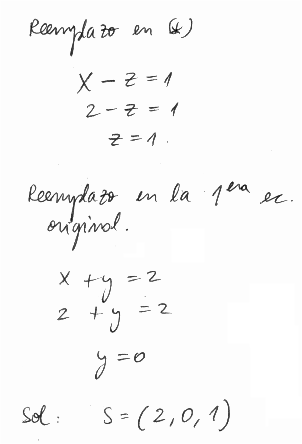 Reemplazo en (*)
x - z = 1
2 - z = 1
z = 1.
Reemplazo en la 1era ec.
original.
x + y = 2
2 + y = 2
y = 0
Sol: S = (2, 0, 1)